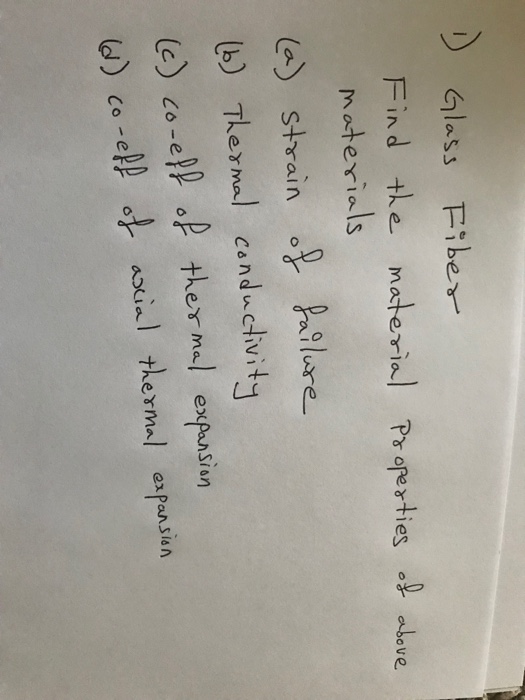 1) Glass Fiber
Find the material properties of above
materials
(a) strain of failure
(b) Thermal conductivity
(c) co-eff of thermal expansion
(d) co-eff of axial thermal expansion